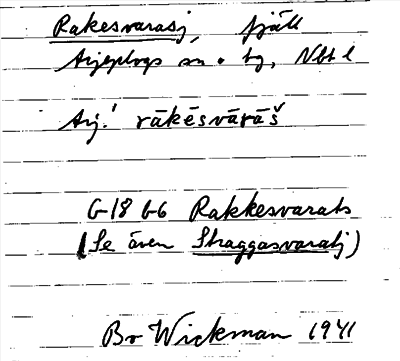 Rakesvarasj, fjäll
Arjeplogs sn o by, Nbt l
Arj. rākēsvārāš
G-18 b6 Rakkesvarats
(Se även Straggasvaratj)
Bo Wickman 1941